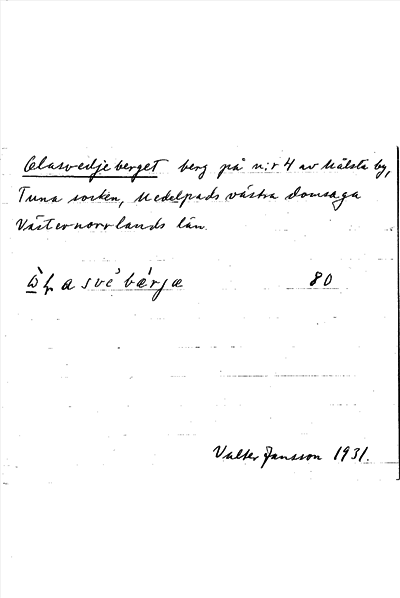 Olasvedjeberget berg på n:r 4 av Målsta by,
Tuna socken, Medelpads västra domsaga
Västernorrlands län.
80
Valter Jansson 1931.